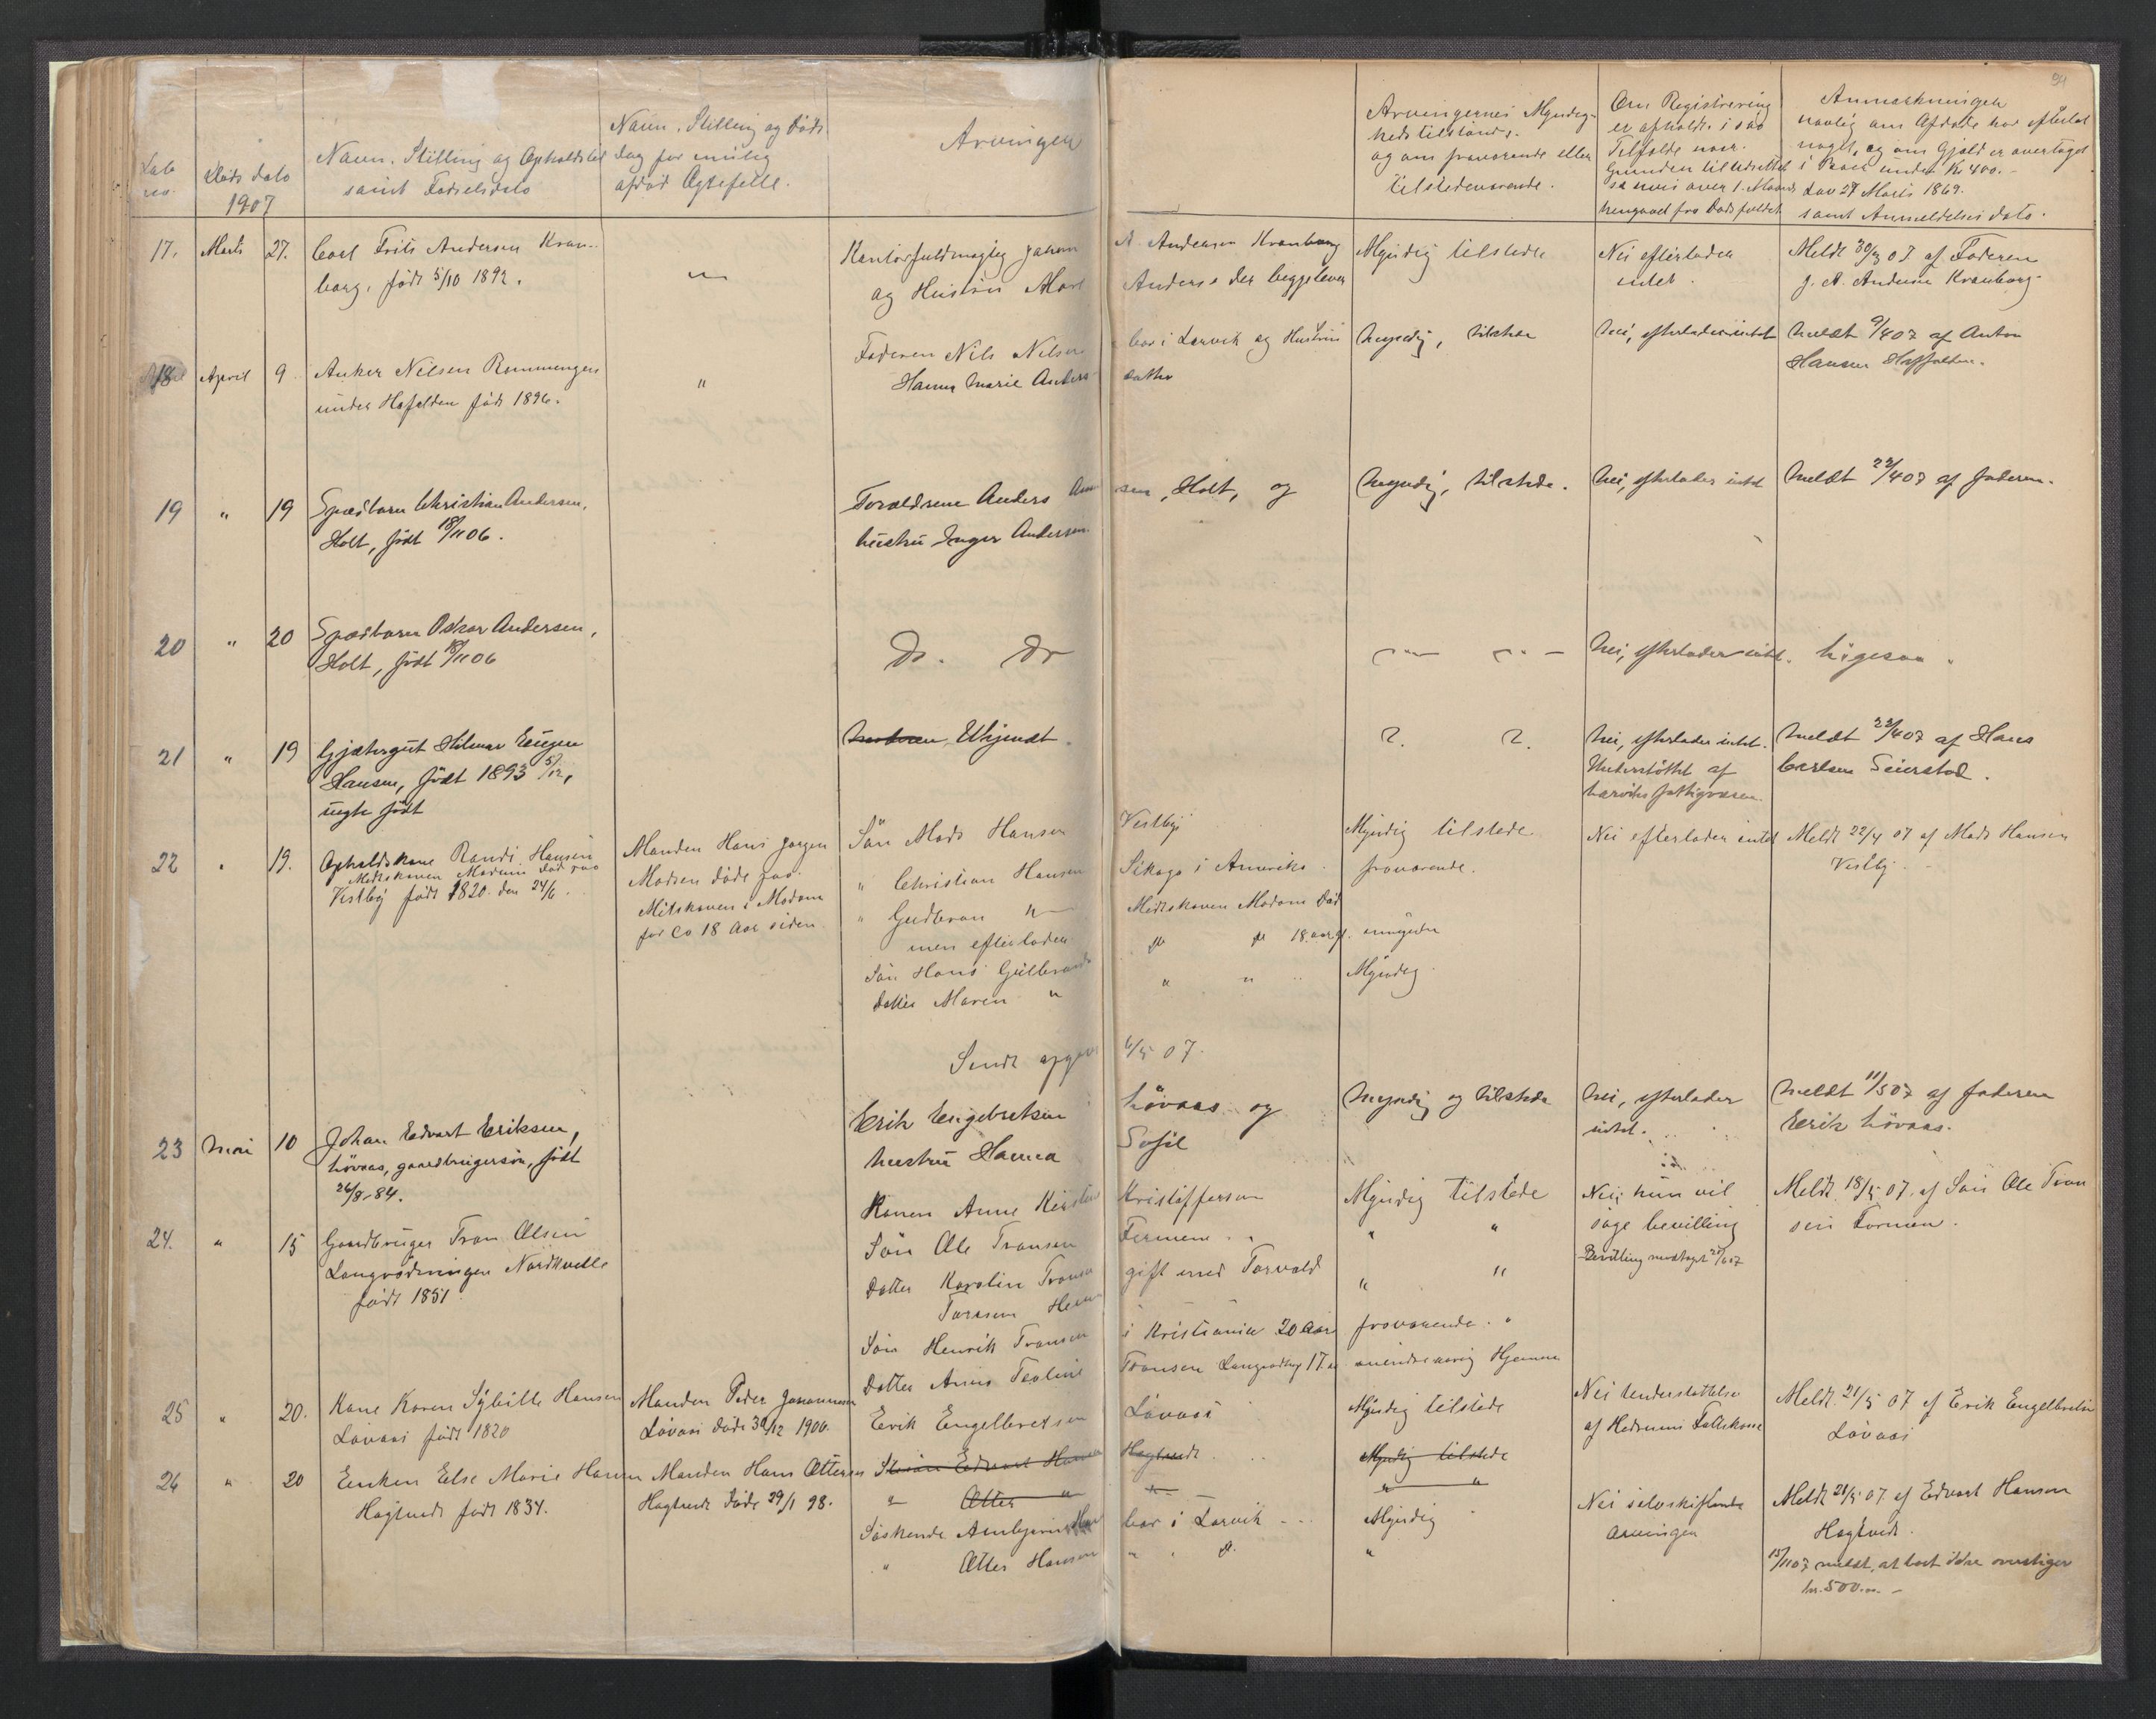 94
Løbe no.
Døds dato
1907
Navn, Stilling og Opholdsted
samt Fødselsdato
Navn, Stilling og Døds
dag for mulig
afdød Ægtefelle.
Arvinger
Arvingernes Myndig-
heds tilstand.
og om fraværende eller
tilstedeværende.
Om Registrering
er afholdt i saa
Tilfælde naar.
Grunden til
hengaaet fra Dødsfaldet
Anmærkninger
navnlig om Afdøde har efterlat
noget, og om Gjæld er overtaget
i Boer under Kr 400.-
Lov 27 Marts 1869.
samt Anmeldelses dato.
17. Marts 27. Carl Frits Andersen Kran-
borg, født 5/10 1892.
Kontorfuldmægtig Johan A. Andersen Kranborg
og Hustru Andersen der begge lever
Myndig tilstede
Nei efterlader
intet.
Meldt 30/3 07. af Faderen
J. A. Andersen Kranborg
18 April 9. Anker Nilsen Rømmingen
under Hafalden født 1896.
"
Faderen Nils Nilsen bor i Larvik og Hustru
Hanna Marie Anders datter
Myndig, tilstede
Nei, efterlader intet
Meldt 9/4 07 af Anton
Hansen
19 " 19 Spædbarn Christian Andersen,
Holt, født 18/11 06.
Forældrene Anders Andersen, Holt, og
hustru Inger Andersen
Myndig, tilstede.
Nei, efterlader intet
Meldt 22/4 07 af faderen.
20 " 20 Spædbarn Oskar Andersen,
Holt, født 18/11 06
Do. Do
Nei, efterlader intet.
Ligesaa.
21 " 19 Gjætergut Hilmar Eugen
Hansen, født 1893 5/12,
uægte født
Moderen Ukjendt.
?. ?.
Nei, efterlader intet.
Understøttet af
Larviks fattigvæsen.
Meldt 22/4 07 af Hans
Carlsen Seierstad.
22 " 19. Opholdskone Randi Hansen
Medskoven Modum død paa
Vestby født 1820. den 24/6.
Manden Hans Jørgen
Madsen døde paa
Mitskoven i Modum
for ca 18 Aar siden
Søn Mads Hansen Vestby
" Christian Hansen Sikago i Amerika
" Gudbran " Midtskoven Modum Død
men efterlader
Søn Hans Gulbrands do do 18. aar gl.
Datter Maren " " "
Myndig tilstede
fraværende.
umyndig
Myndig
Nei efterlader intet
Meldt 22/4 07 af Mads Hansen
Vestby.
Sendt opgave 6/5 07.
23 Mai 10 Johan Edvart Eriksen,
Løvaas, gaardbrugersøn, født
26/8-84.
Erik Engebretsen Løvaas og
hustru Hanna Sofie
Myndig og tilstede
Nei, efterlader
intet.
Meldt 11/5 07 af faderen
Erik Løvaas.
24. " 15 Gaardbruger Tron Olsen
Langrødningen Nordkvelle
født 1851
Konen Anne Kirstine Kristoffersen
Søn Ole Tronsen Formene
Datter Karoline Tronsen gift med Torvald
Søn Henrik Tronsen i Kristiania 20 Aar
Datter Anna Teoline Tronsen Langrødning 17 aar
Myndig tilstede
" "
" "
fraværende. "
mindreaarig Hjemme
Nei, hun vil
søge bevilling
Bevilling modtaget
Meldt 18/5 07. af Søn Ole Tron
sen Formen.
25 " 20. Kone Karen Sybille Hansen
Løvaas født 1820
Manden Peder Johannesen
Løvaas døde 30/12 1900.
Erik Engelbretsen Løvaas
Myndig tilstede
Nei Understøttelse
af Hedrums Fattikasse
Meldt 21/5 07 af Erik Engelbretsen
Løvaas
26 " 20 Enken Else Marie Hansen
Hagtvedt født 1834.
Manden Hans Ottersen
Hagtvedt døde 29/1 98.
Edvart Hansen Hagtvedt
" Otter " "
Søskende bor i Larvik
" Otter Hansen " " do.
Myndig tilstede
" "
Myndig
"
Nei selvskiftende
Arvinger
Meldt 21/5 07. af Edvart Hansen
Hagtvedt.
15/11 07 meldt, at boet ikke overstiger
kr. 500.-